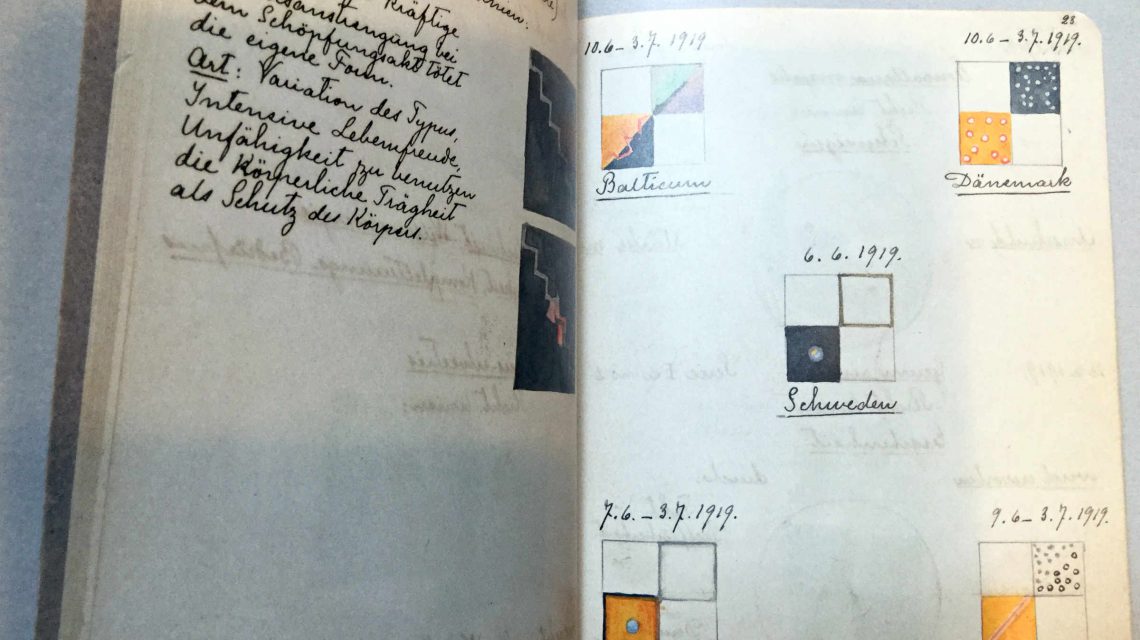 Kräftige
bei
dem Schöpfungsakt tötet
die eigene Form.
Art: Variation des Typus,
Intensive Lebensfreude,
Unfähigkeit zu benutzen
die Körperliche Trägheit
als Schutz des Körpers.
28
10.6 – 3.7. 1919
10.6 – 3.7. 1919.
Balticum
Dänemark
6. 6. 1919.
Schweden
7.6. – 3.7. 1919.
9.6 – 3.7. 1919.